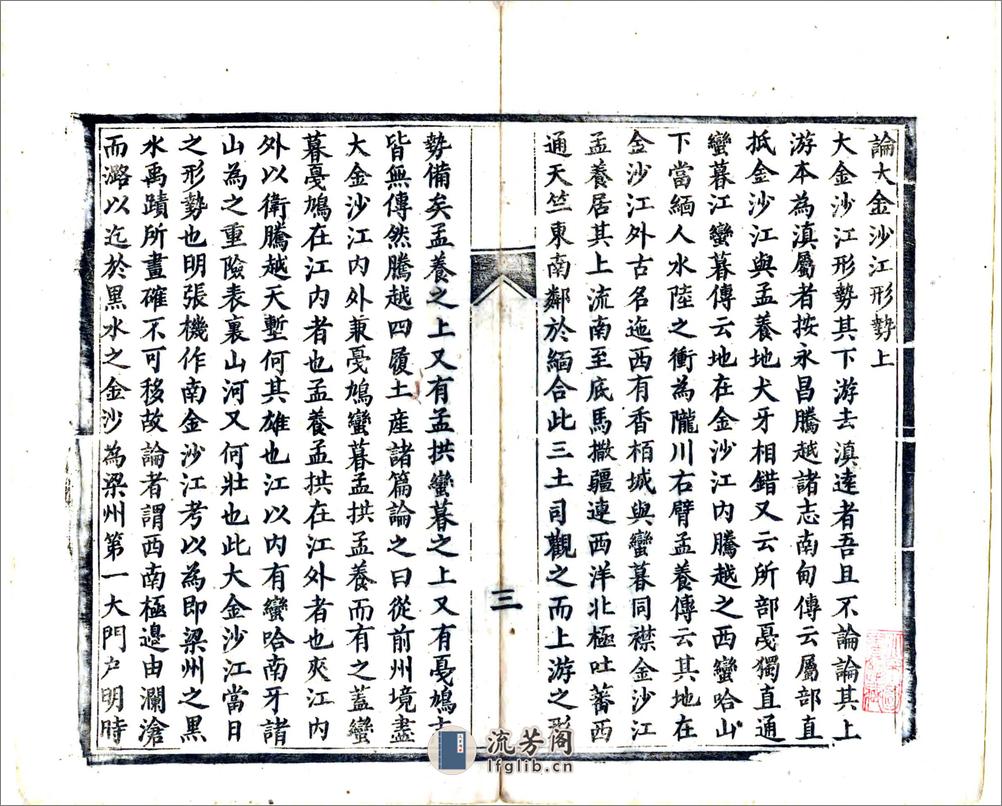 論大金沙江形勢上
大金沙江形勢其下游去滇遠者吾且不論論其上
游本為滇屬者按永昌騰越諸志南甸傳云屬部直
抵金沙江與孟養地犬牙相錯又云所部戞獨直通
蠻暮江蠻暮傳云地在金沙江內騰越之西蠻哈山
下當緬人水陸之衝為隴川右臂孟養傳云其地在
金沙江外古名迤西有香栢城與蠻暮同襟金沙江
孟養居其上流南至底馬撒疆連西洋北極吐蕃西
通天竺東南鄰於緬合此三土司觀之而上游之形
三
勢備矣孟養之上又有孟拱蠻暮之上又有戞鳩
皆無傳然騰越四履土產諸篇論之曰從前州境盡
大金沙江內外兼戞鳩蠻暮孟拱孟養而有之蓋蠻
暮戞鳩在江內者也孟養孟拱在江外者也夾江內
外以衛騰越天塹何其雄也江以內有蠻哈南牙諸
山為之重險表裏山河又何壯也此大金沙江當日
之形勢也明張機作南金沙江考以為即梁州之黑
水禹蹟所畫確不可移故論者謂西南極邊由瀾滄
而潞以迄於黑水之金沙為梁州第一大門戶明時
流芳阁
lfglib.cn